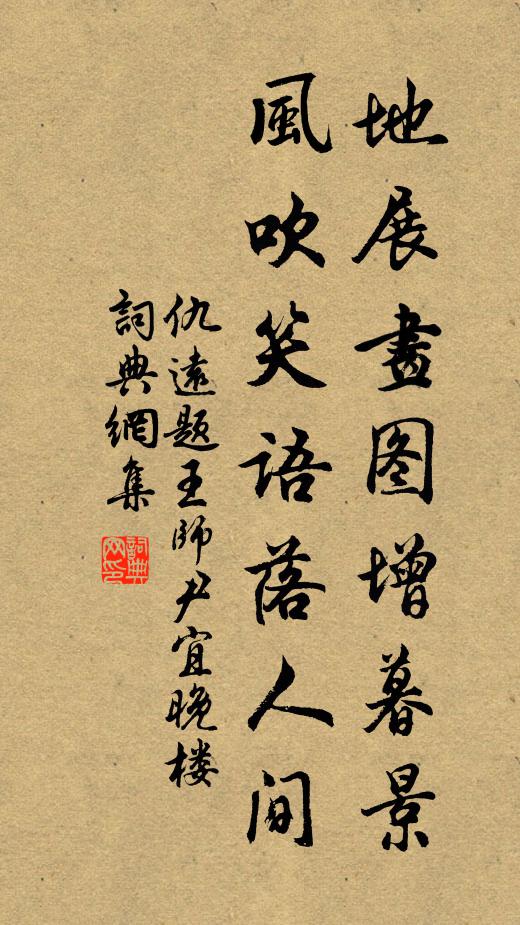 地展畫图增暮景
風吹笑语落人间
仇遠题王師尹宜晚楼
詞典網集
詞典网印